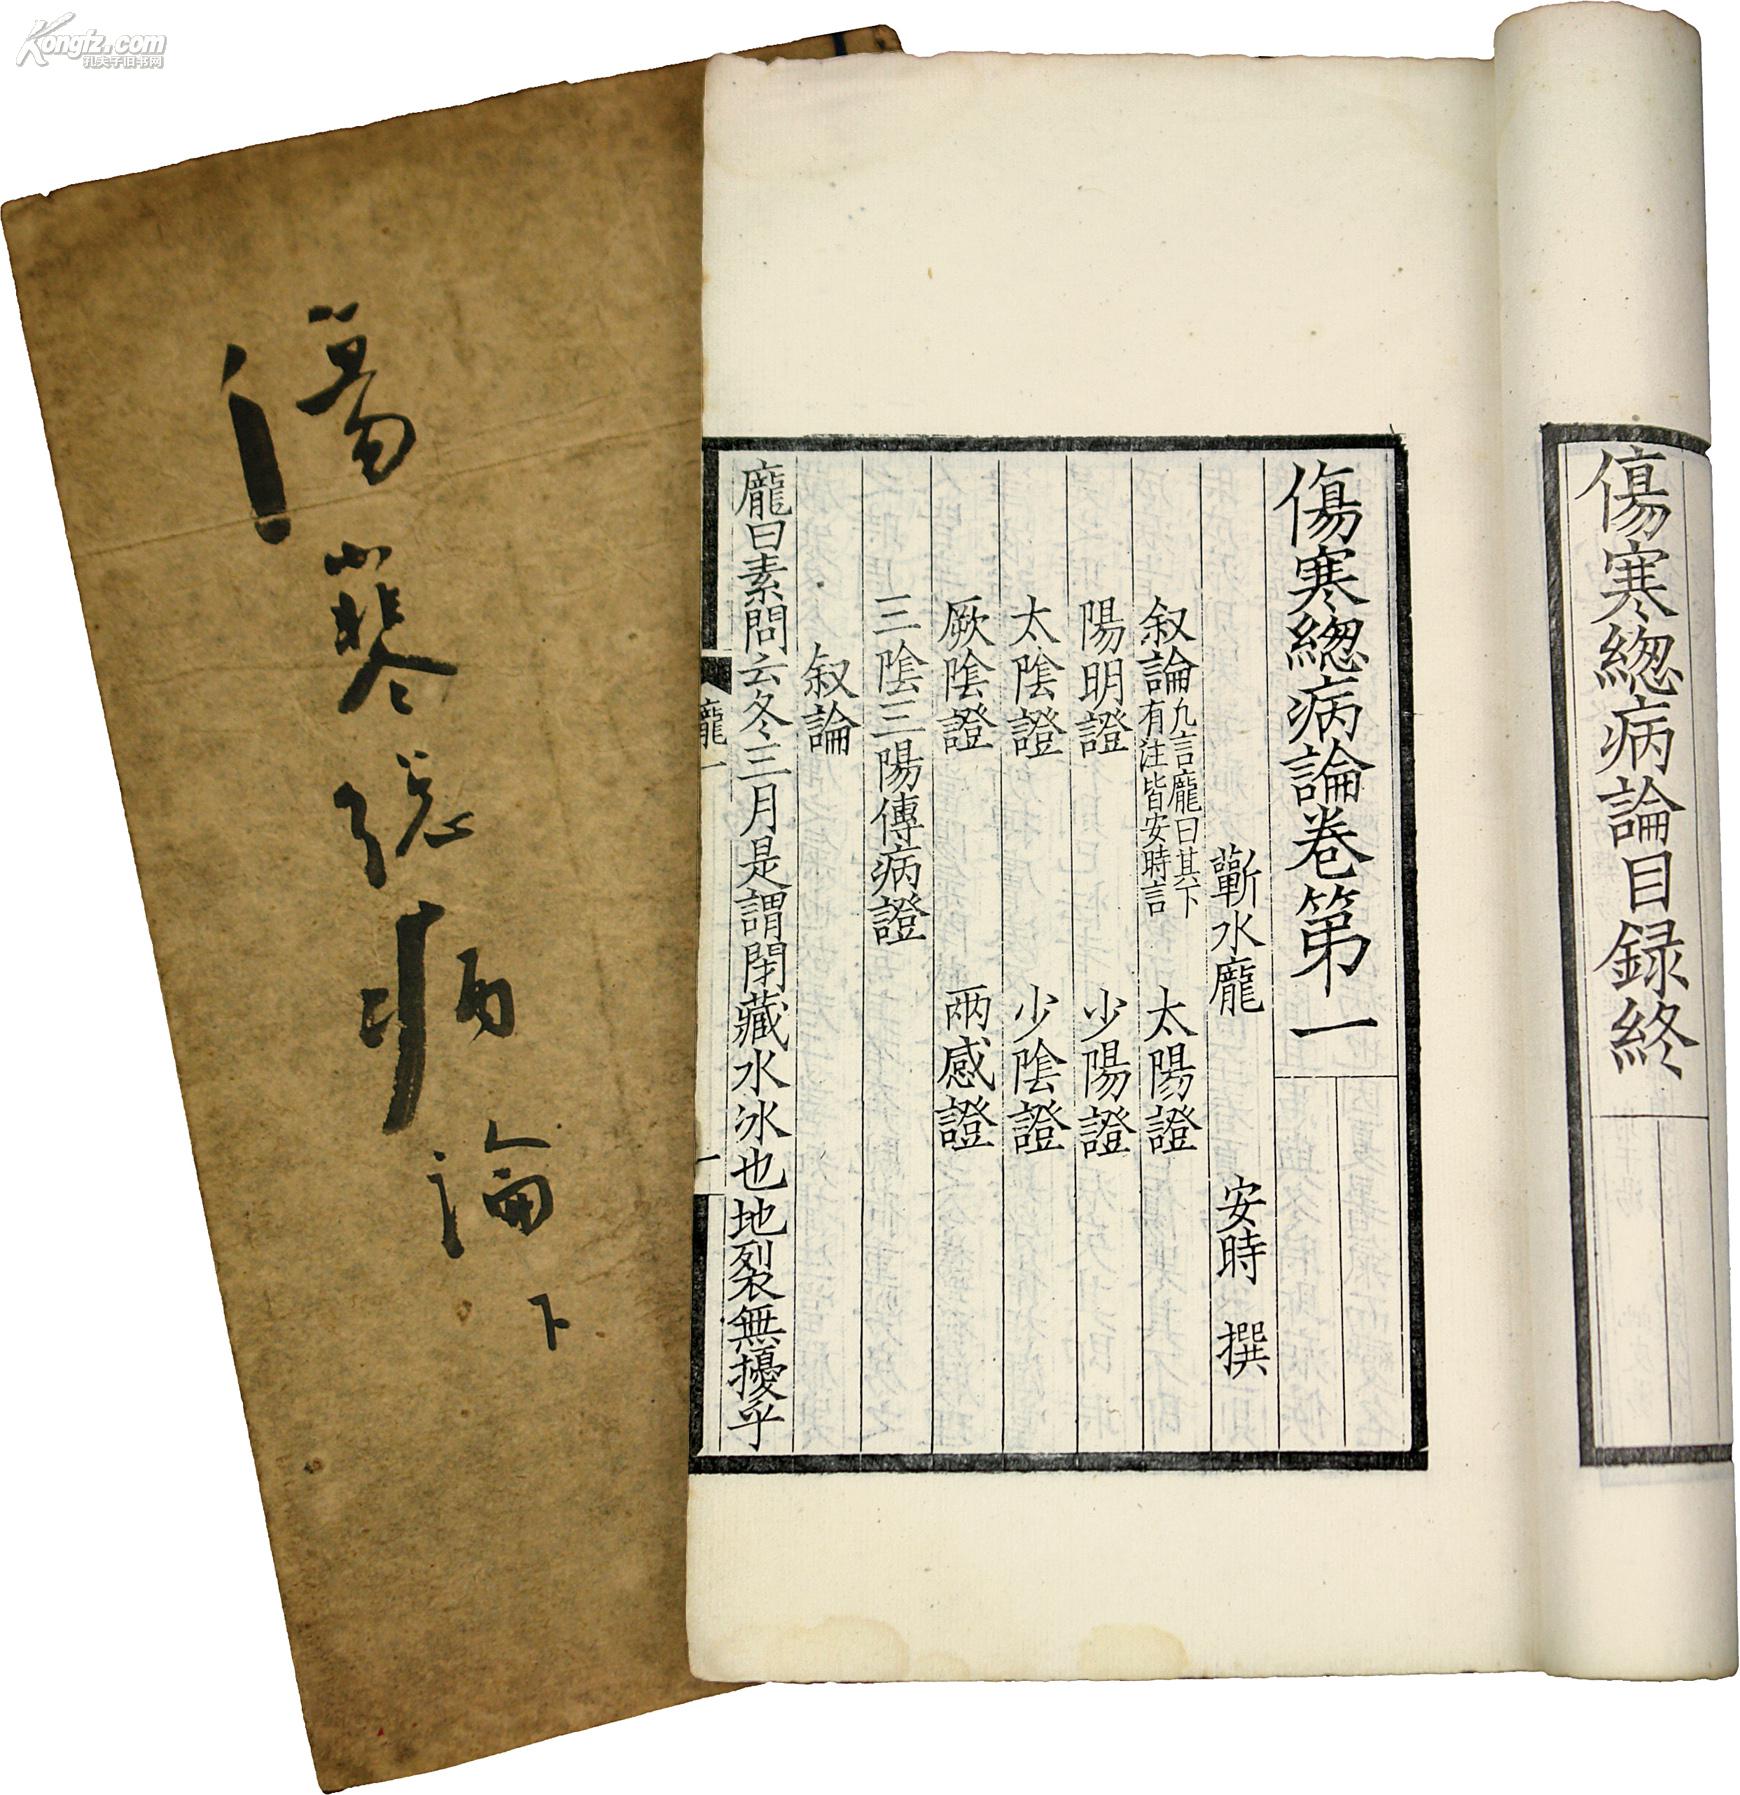 Kongfz.com
孔夫子旧书网
傷寒緫病論目録終
傷寒緫病論卷第一
蘄水龐 安時 撰
叙論 凡言龐曰其下有注皆安時言 太陽證
陽明證 少陽證
太陰證 少陰證
厥陰證 兩感證
三陰三陽傳病證
叙論
龐曰素問云冬三月是謂閉藏水冰地裂無擾乎
龐一
一
傷寒總病論 下